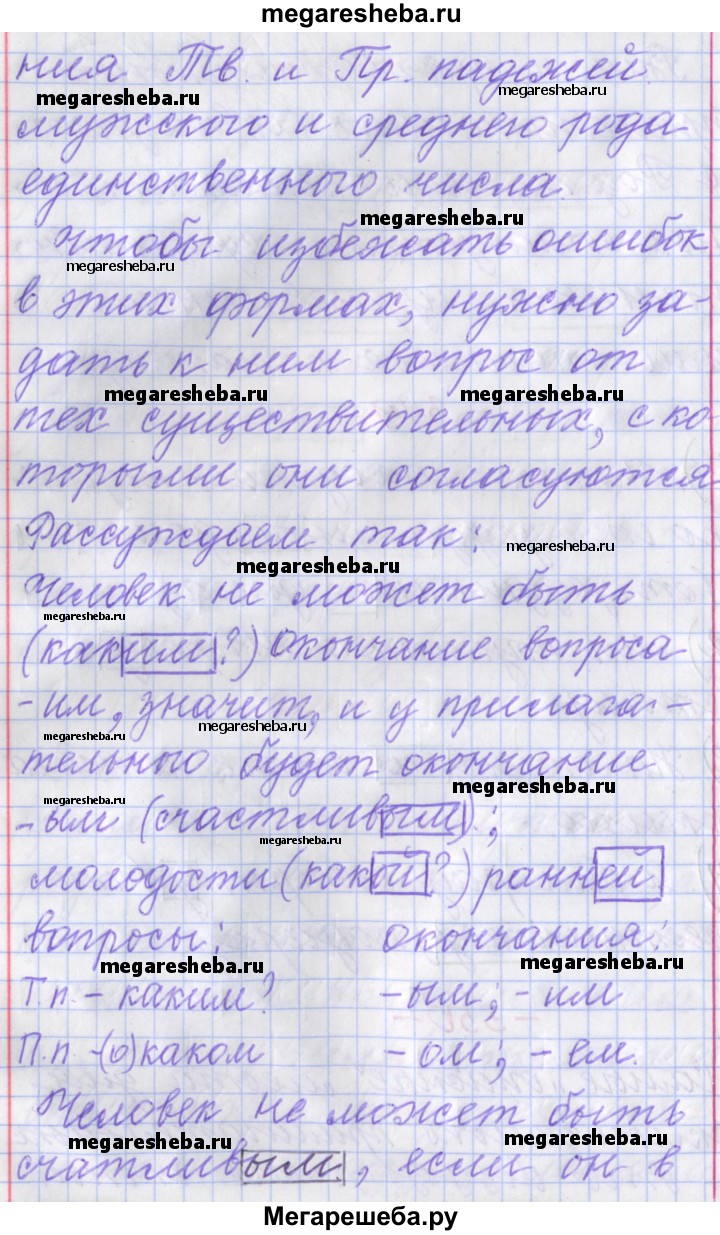 megaresheba.ru
ния Тв. и Пр. падежей
megaresheba.ru megaresheba.ru
мужского и среднего рода
единственного числа.
megaresheba.ru
Чтобы избежать ошибок
megaresheba.ru
в этих формах, нужно за-
дать к ним вопрос от
megaresheba.ru megaresheba.ru
тех существительных, с ко
торыми они согласуются
Рассуждаем так:
megaresheba.ru
megaresheba.ru
Человек не может быть
megaresheba.ru
(каким?) Окончание вопроса
-им, значит, и у прилага-
megaresheba.ru
megaresheba.ru
тельного будет окончание
megaresheba.ru
megaresheba.ru
-ым (счастливым).;
megaresheba.ru
молодости (какой?) ранней
вопросы: окончания:
megaresheba.ru megaresheba.ru
Т.п. - каким? -ым; -им
П.п. -(о)каком -ом; -ем.
Человек не может быть
megaresheba.ru megaresheba.ru
счатливым, если он в
Мегарешеба.ру